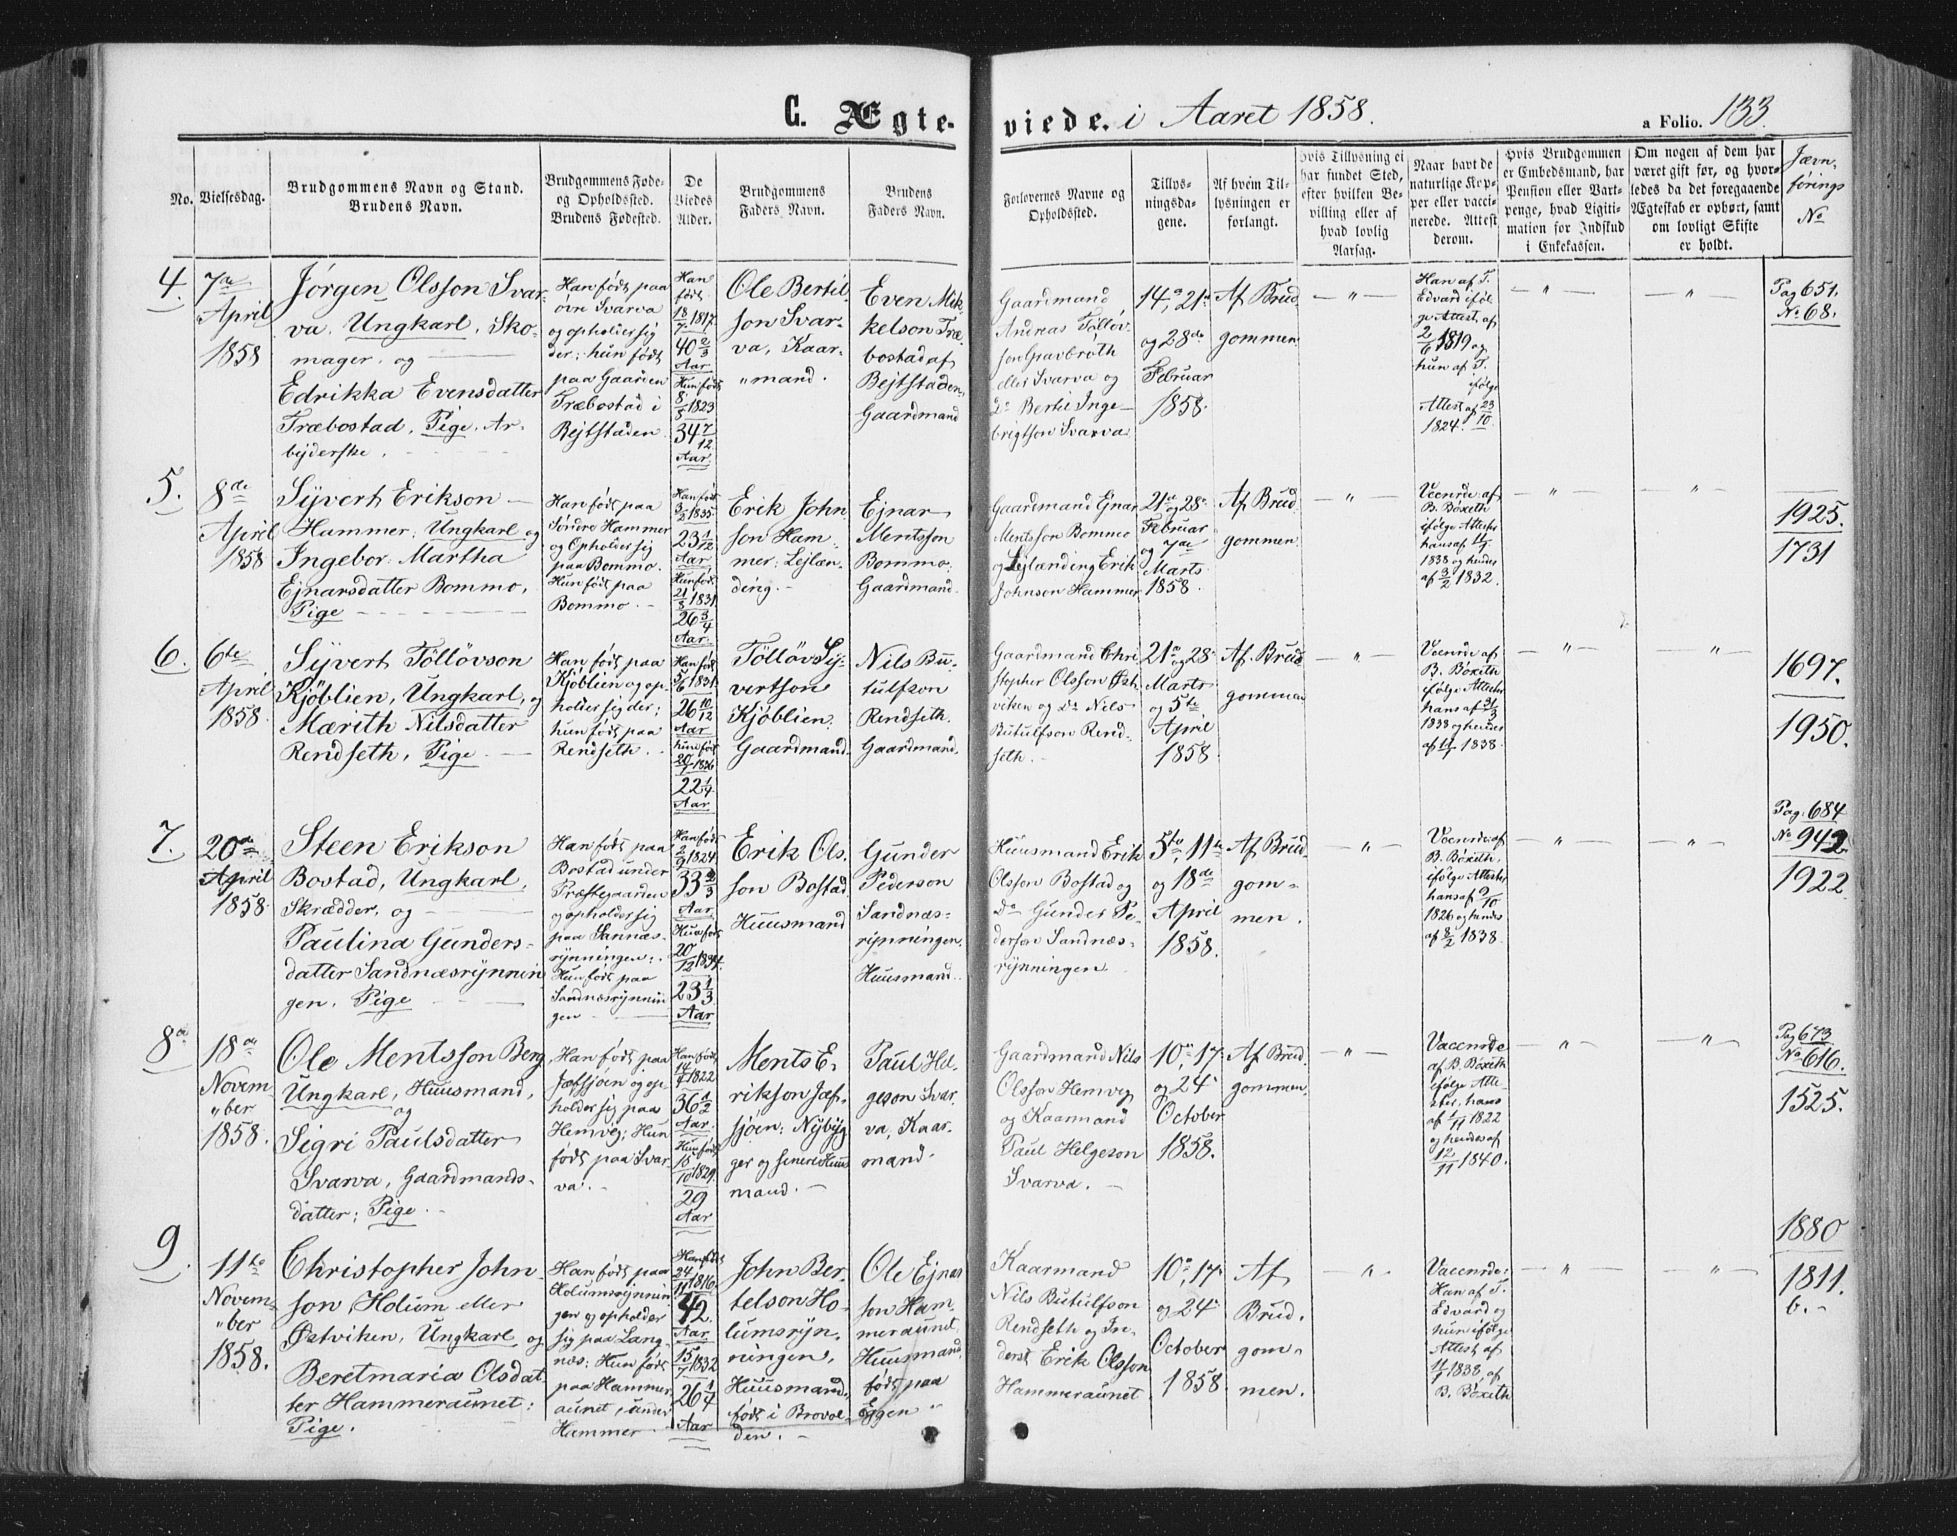 C. Ægte-
viede. i Aaret 1858.
a Folio. 133.
No.
Vielsesdag.
Brudgommens Navn og Stand.
Brudens Navn.
Brudgommens Føde-
og Opholdssted.
Brudens Fødested.
De
Viedes
Alder.
Brudgommens
Faders Navn.
Brudens
Faders Navn.
Forlovernes Navne og
Opholdssted.
Tillys-
ningsda-
gene.
Af hvem Til-
lysningen er
forlangt.
Hvis Tillysning ei
har fundet Sted,
efter hvilken Be-
villing eller af
hvad lovlig
Aarsag.
Naar havt de
naturlige Kop-
per eller vacci-
nerede. Attest
derom.
Hvis Brudgommen
er Embedsmand, har
Pension eller Vart-
penge, hvad Ligiti-
mation for Indskud
i Enkekassen.
Om nogen af dem har
været gift før, og hvor-
ledes da det foregaaende
Ægteskab er ophørt, samt
om lovligt Skifte
er holdt.
Jævn-
førings
No
4.
7de
April
1858
Jørgen Olsson Svar-
va, Ungkarl, Sko-
mager, og
Edrikka Evensdatter
Træbostad, Pige, Ar-
bejderske.
Han født paa
øvre Svarva
og opholder sig
der; hun født
paa Gaarden
Træbostad i
Bejtstaden
Han
født
18/7 1817.
40 2/3
Aar
Hun født
8/8 1823
34 7/12
Aar
Ole Bertil-
son Svar-
va, Kaar-
"mand.
Even Mik-
kelson Træ-
bostad af
Bejtstaden,
Gaardmand
Gaardmand
Andreas Tölløv-
son Gravbrøth
eller Svarva og
Do Bertil Inge-
brigtson Svarva
14de, 21de
og 28de
Februar
1858.
Af Brud
gommen
— " —
Han af T.
Edvard iføl-
ge Attest af
2/6 1819 og
hun af T.
ifølge
Attest af 23/10
1824.
— " —
"
Pag 651.
No 68.
5.
8de
April
1858
Syvert Erikson
Hammer, Ungkarl og
Ingebor Martha
Ejnarsdatter Bommo,
Pige
Han født paa
Söndre Hammer
og Opholder sig
paa Bommo.
Hun født paa
Bommo.
Han født
3/2 1835
23 1/12
Aar
Hun født
21/8 1831
26 3/4
Aar
Erik John
son Ham-
mer; Lejlæn-
ding.
Ejnar
Mentsson
Bommo;
Gaardmand.
Gaardmand Ejnar
Mentsson Bommo
og Lejlænding Erik
Johnson Hammer
21de og 28de
Februar
og 7de
Marts
1858.
Af Brud
gommen
— " —
Vccnrde af
B. Böxeth
ifölge Attester
hans af 11/7
1838 og hendes
af 3/2 1832.
— " —
— " —
1925.
1731
6.
6te
April
1858.
Syvert Tölløvson
Kjöblien, Ungkarl, og
Mærith Nilsdatter
Rendseth, Pige
Han født paa
Kjöblien og op-
holder sig der;
hun født paa
Rendseth.
Han født
5/6 1831.
26 10/12
Aar
hun født
22 1/4
Aar
Tölløv Sy-
vertson
Kjöblien;
Gaardmand.
Nils Bu-
tulfson
Rendseth.
Gaardmand.
Gaardmand Chri
stopher Olsson Øst-
viken og Do Nils
Butulfson Rend-
seth.
21de og 28de
Marts
og 5te
April
1858
Af Brud
gommen
— " —
Vccnrde af
B. Böxeth
ifölge Attester
hans af 31/3
1838 og hendes
af 11/7 1838.
— " —
"
1697.
1950.
7.
20de
April
1858
Steen Erikson
Bostad, Ungkarl,
Skrædder, og
Paulina Gunders-
datter Sandnæsrÿnnin
gen, Pige
Han født paa
Bostad under
Præstegaarden
og opholder sig
paa Sannæs-
rÿnningen;
Hun født paa
Sandnæsrÿnnin
gen
Han født
2/9 1824.
33 2/3
Aar
Hun født
20/12 1834.
23 1/3
Aar
Erik Ols-
son Bostad
Huusmand
Gunder
Pederson
Sandnæs-
rÿnningen,
Huusmand.
Huusmand Erik
Olsson Bostad og
Do Gunder Pe-
derson Sandnæs-
rÿnningen
5te, 11te
og 18de
April
1858.
Af Brud-
gom-
men.
— " —
Vccnrde af
B. Böxeth,
ifölge Attester
hans af 9/10
1826 og hendes
af 8/2 1838.
— " —
"
Pag. 684
No 942.
1922
8de
18de
Novem-
"ber
1858.
Ole Mentsson Berg
Ungkarl, Huusmand,
og
Sigri Paulsdatter
Svarva, Gaardmands-
datter; Pige.
Han født paa
Jæfsjøen og op-
holder sig paa
Hemvig; Hun
født paa Svar-
va.
Han født
14/4 1822
36 1/2
Aar.
Hun født
18/10 1829.
29
Aar
Ments E-
rikson Jæf-
sjøen; Nybÿg
ger og senere Huus
mand.
Paul Hel-
geson Svar-
va, Kaar-
mand.
Gaardmand Nils
Olsson Hemvig
og Kaarmand
Paul Helgeson
Svarva.
10de, 17de
og 24de
October
1858.
Af Brud
gommen
— " —
Vaccnrde
af B. Böxeth
ifölge Atte-
ster, hans
af 1/11 1822
og hendes af
12/11 1840.
— " —
"
Pag 673
No 616.
1525.
9.
11te
Novem-
"ber
1858.
Christopher John-
son Holum eller
Østviken, Ungkarl og
Beretmaria Olsdat-
ter Hammeraunet;
Pige.
Han født paa
Holumsrÿnnin
gen og opholder
sig paa Lang-
næs; Hun født
paa Hammer
aunet, under
Hammer
Han født
24/11 1816.
42.
Aar
15/7 1832
26 1/4
Aar
John Ber-
telson Ho-
lumsrÿn-
ningen,
Huusmand,
født i Brovol-
den.
Ole Ejnar
son Ham-
meraunet,
Huusmand,
født paa
Eggen
Kaarmand
Nils Butulfson
Rendseth og In-
derst Erik Olsson
Hammeraunet
10de, 17de
og 24de
October
1858.
Af
Brud.
gom-
men.
— " —
Vaccnrde;
Han af T.
Edvard og
hun ifølge
Attest af
11/7 1838, af
B. Böxeth
— " —
— " —
1880
1811.
b.